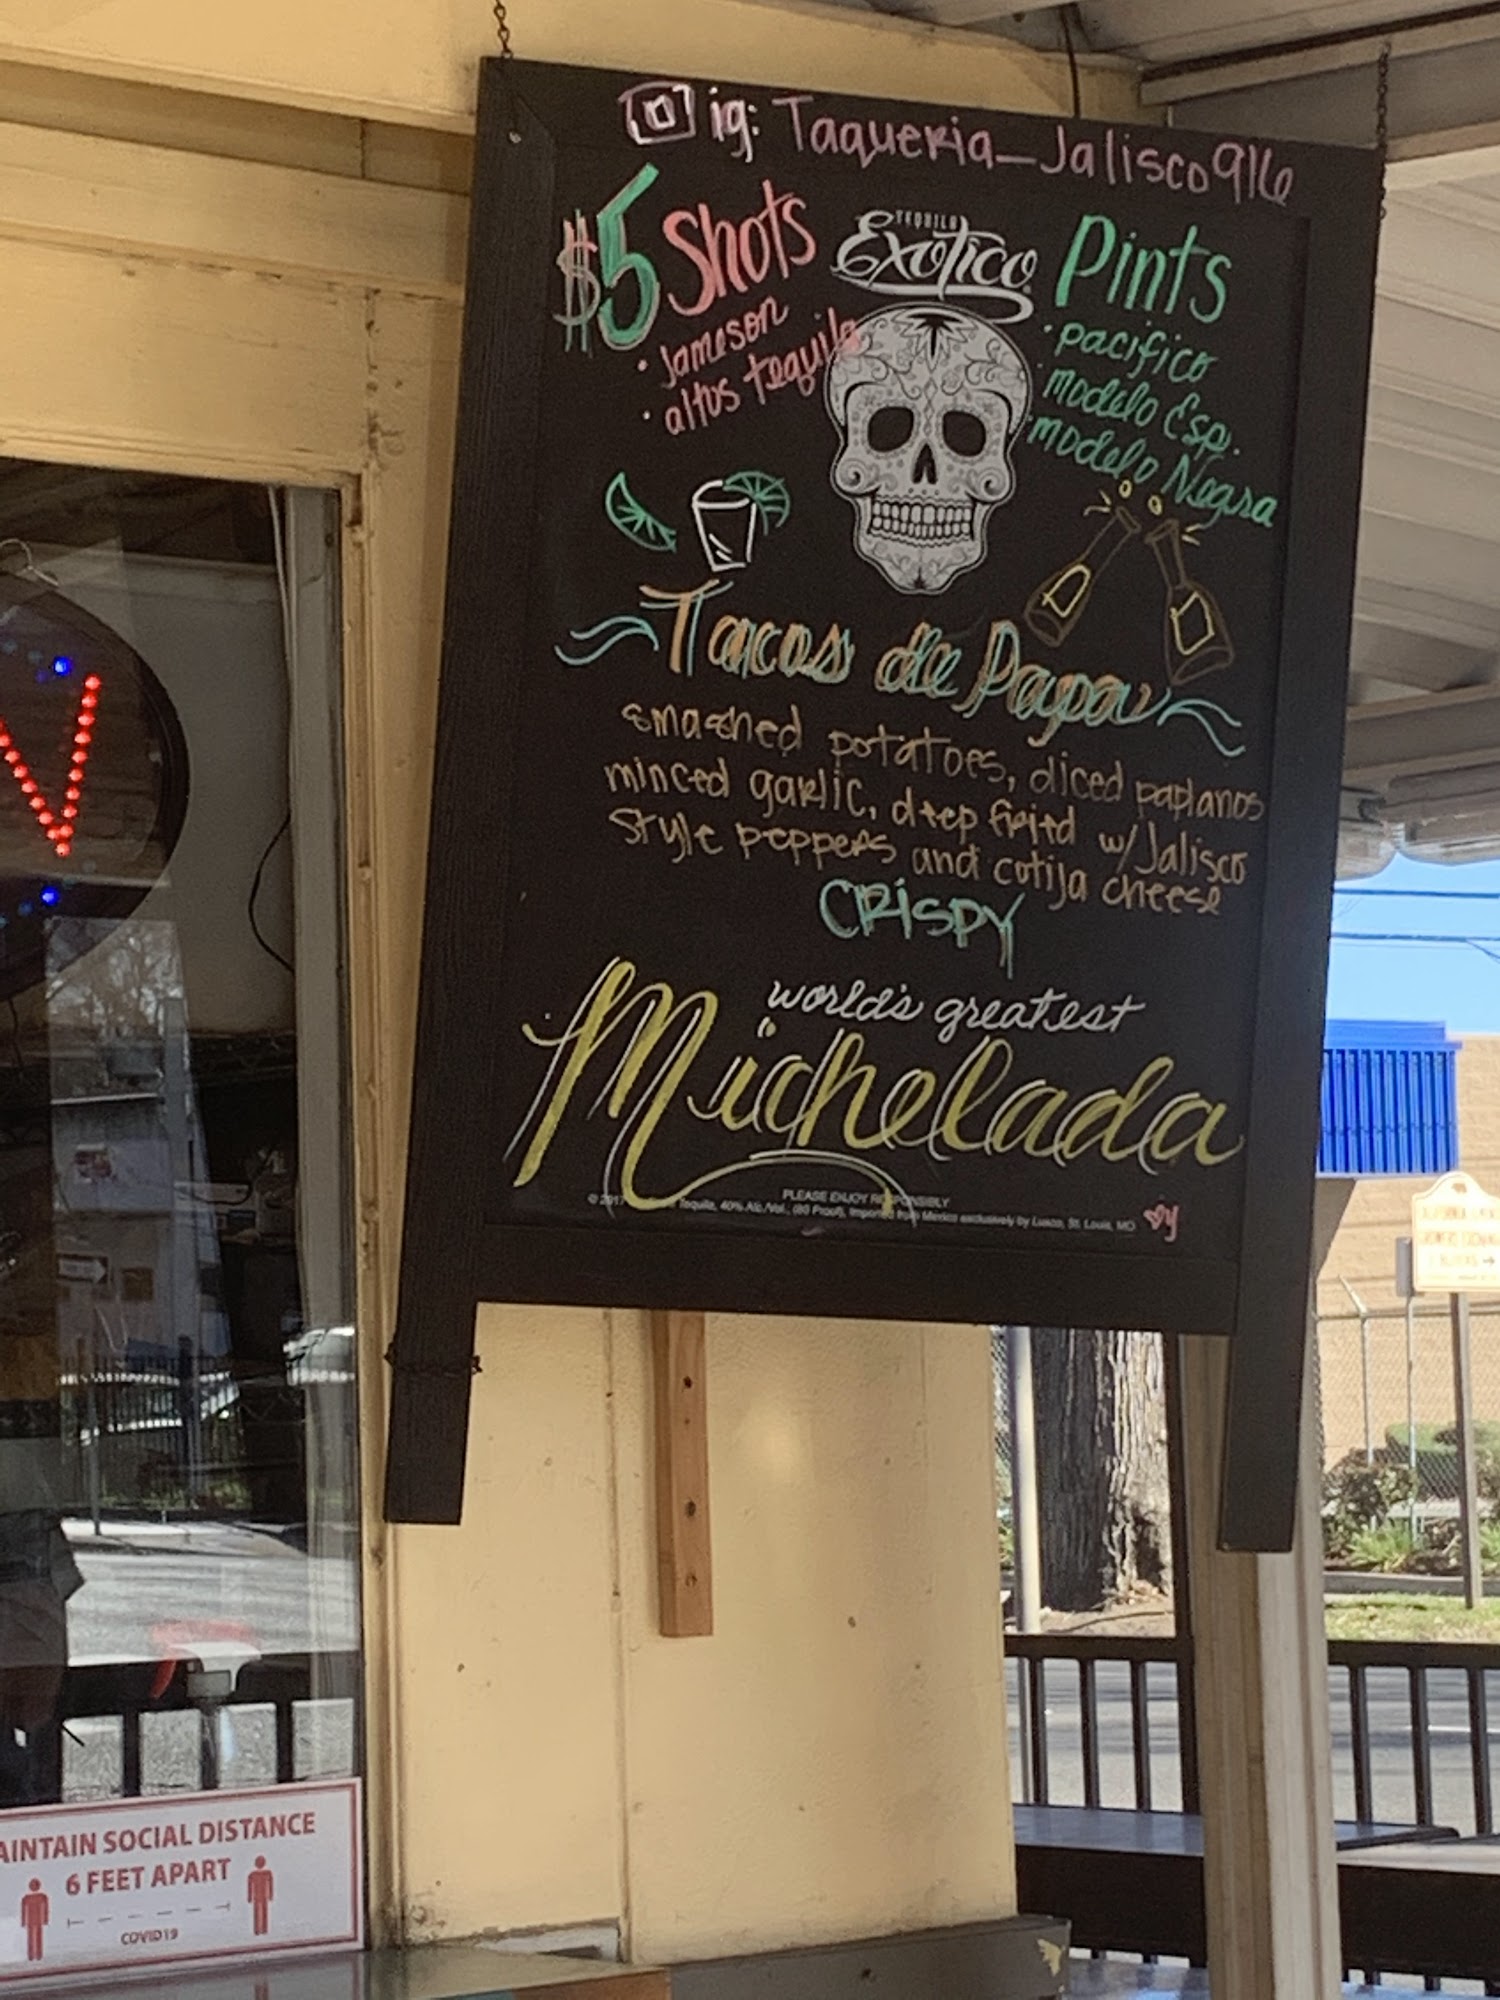 ig: Taqueria_Jalisco916
$5 Shots
· Jameson
· altos tequila
TEQUILA
Exotico
Pints
· pacifico
· modelo Esp.
· modelo Negra
Tacos de Papa
smashed potatoes, diced paplanos
minced garlic, deep fried w/ Jalisco
style peppers and cotija cheese
CRISPY
world's greatest
Michelada
PLEASE ENJOY RESPONSIBLY.
© 2017 Tequila, 40% Alc./Vol., (80 Proof), Imported from Mexico exclusively by Luxco, St. Louis, MO
y
V
AINTAIN SOCIAL DISTANCE
6 FEET APART
COVID19